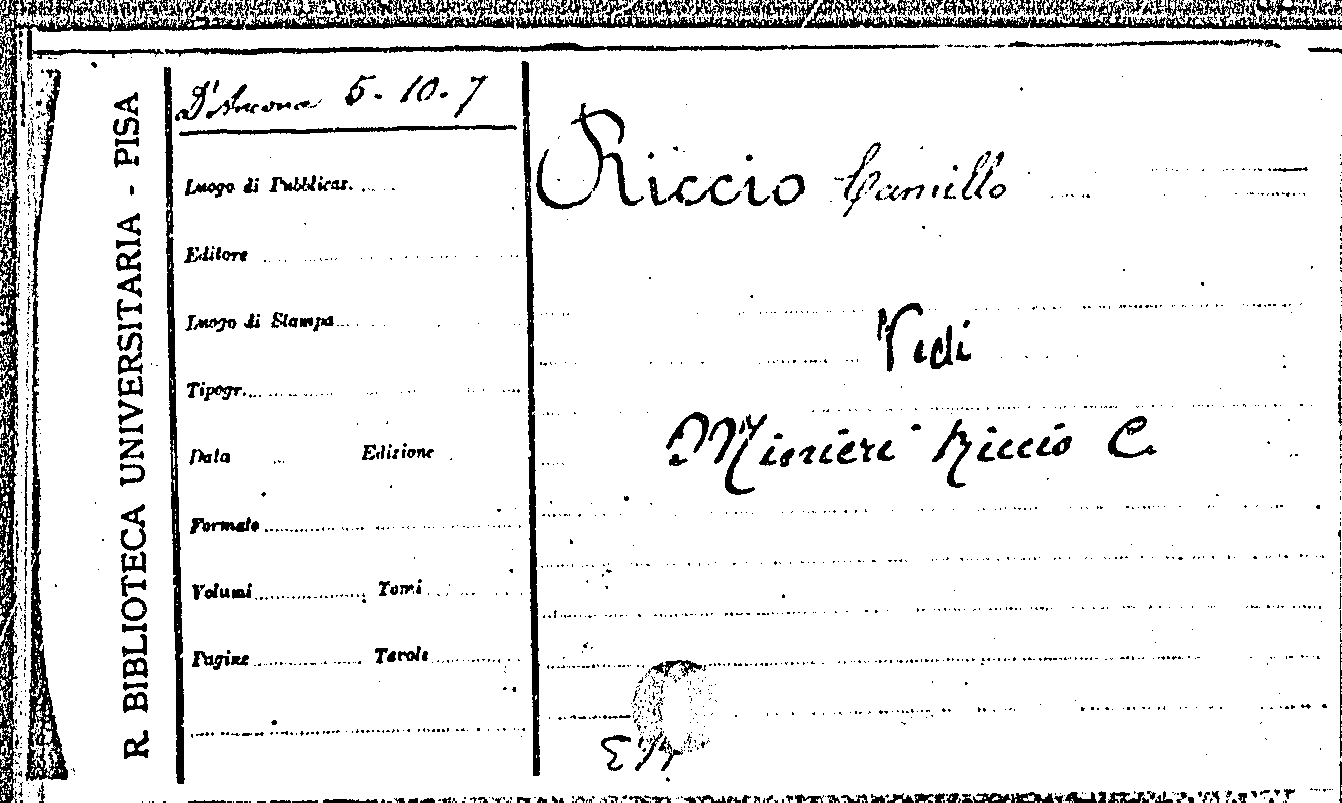 R. BIBLIOTECA UNIVERSITARIA - PISA
D'Ancona 5-10-7
Luogo di Pubblicaz.
Editore
Luogo di Stampa
Tipogr.
Data Edizione
Formato
Volumi Tomi
Pagine Tavole
Riccio Camillo
Vedi
Minieri Riccio C.